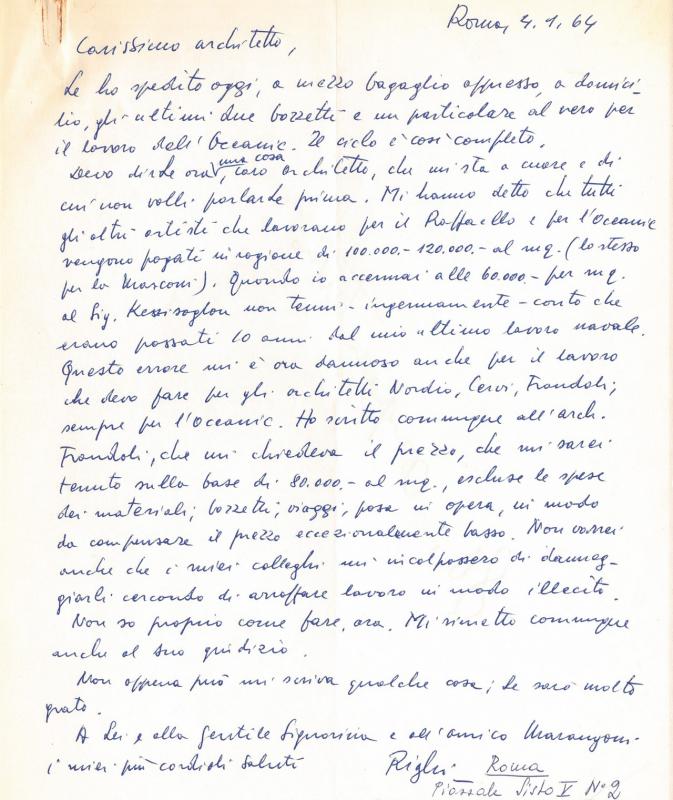 Roma, 4.1.64
Carissimo architetto,
Le ho spedito oggi, a mezzo bagaglio appresso, a domici-
lio, gli ultimi due bozzetti e un particolare al vero per
il lavoro dell'Oceanic. Il ciclo è così completo.
Devo dirLe ora una cosa, caro architetto, che mi sta a cuore e di
cui non volli parlarLe prima. Mi hanno detto che tutti
gli altri artisti che lavorano per il Raffaello e per l'Oceanic
vengono pagati in ragione di 100.000.- 120.000.- al mq. (lo stesso
per la Marconi). Quando io accennai alle 60.000.- per mq.
al Sig. Kessisoglou non tenni - ingenuamente - conto che
erano passati 10 anni dal mio ultimo lavoro navale.
Questo errore mi è ora dannoso anche per il lavoro
che devo fare per gli architetti Nordio, Cervi, Frandoli;
sempre per l'Oceanic. Ho scritto comunque all'arch.
Frandoli, che mi chiedeva il prezzo, che mi sarei
tenuto sulla base di 80.000.- al mq., escluse le spese
dei materiali; bozzetti, viaggi, posa in opera, in modo
da compensare il prezzo eccezionalmente basso. Non vorrei
anche che i miei colleghi mi incolpassero di danneg-
giarli cercando di arraffare lavoro in modo illecito.
Non so proprio come fare, ora. Mi rimetto comunque
anche al suo giudizio.
Non appena può mi scriva qualche cosa; Le sarò molto
grato.
A Lei e alla Gentile Signorina e all'amico Marangoni
i miei più cordiali saluti
Righi Roma
Piazzale Sisto V N° 2